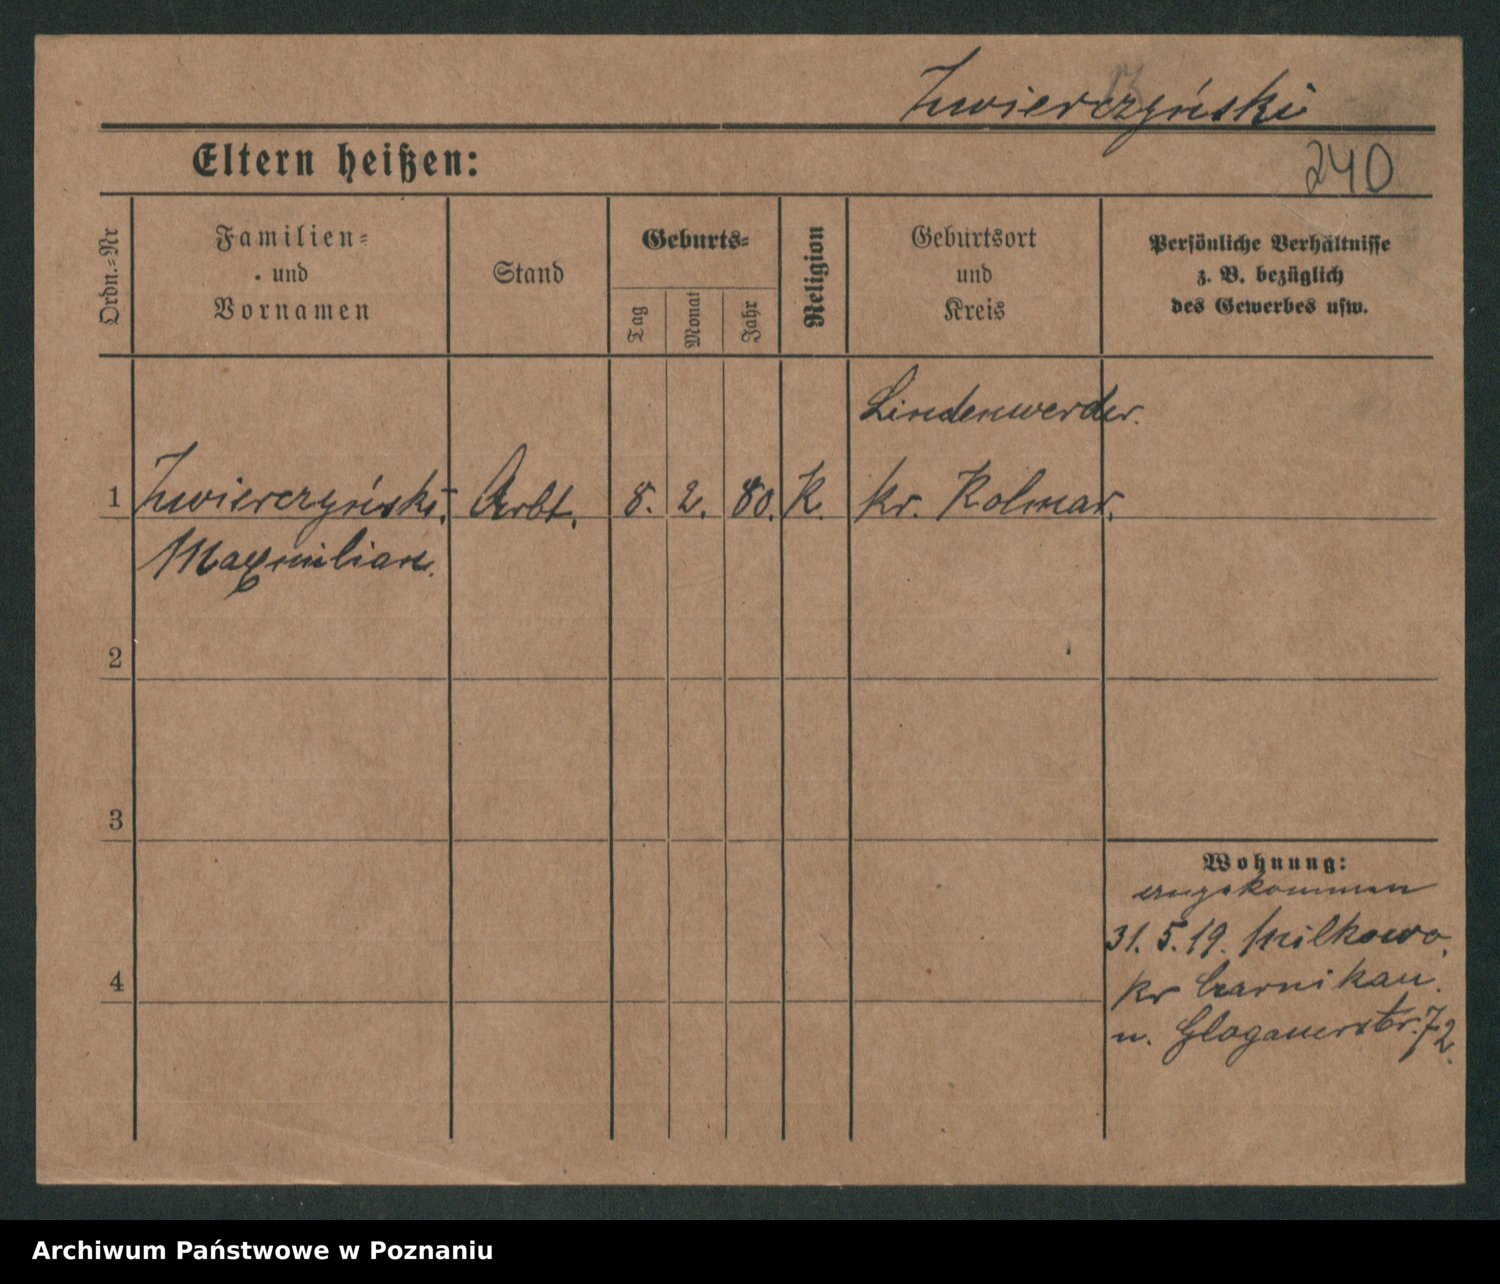 Zwierczyński
Eltern heißen:
240
Ordn.=Nr
Familien=
und
Vornamen
Stand
Geburts=
Tag
Monat
Jahr
Religion
Geburtsort
und
Kreis
Persönliche Verhältnisse
z. B. bezüglich
des Gewerbes usw.
Lindenwerder.
1 Zwierczyński. Arbt. 8. 2. 80. K. Kr. Kolmar.
Maxmilian.
2
3
Wohnung:
angekommen
31. 5. 19. Milkowo,
4
Kr Czarnikau.
n. Glogauerstr. 72.
Archiwum Państwowe w Poznaniu